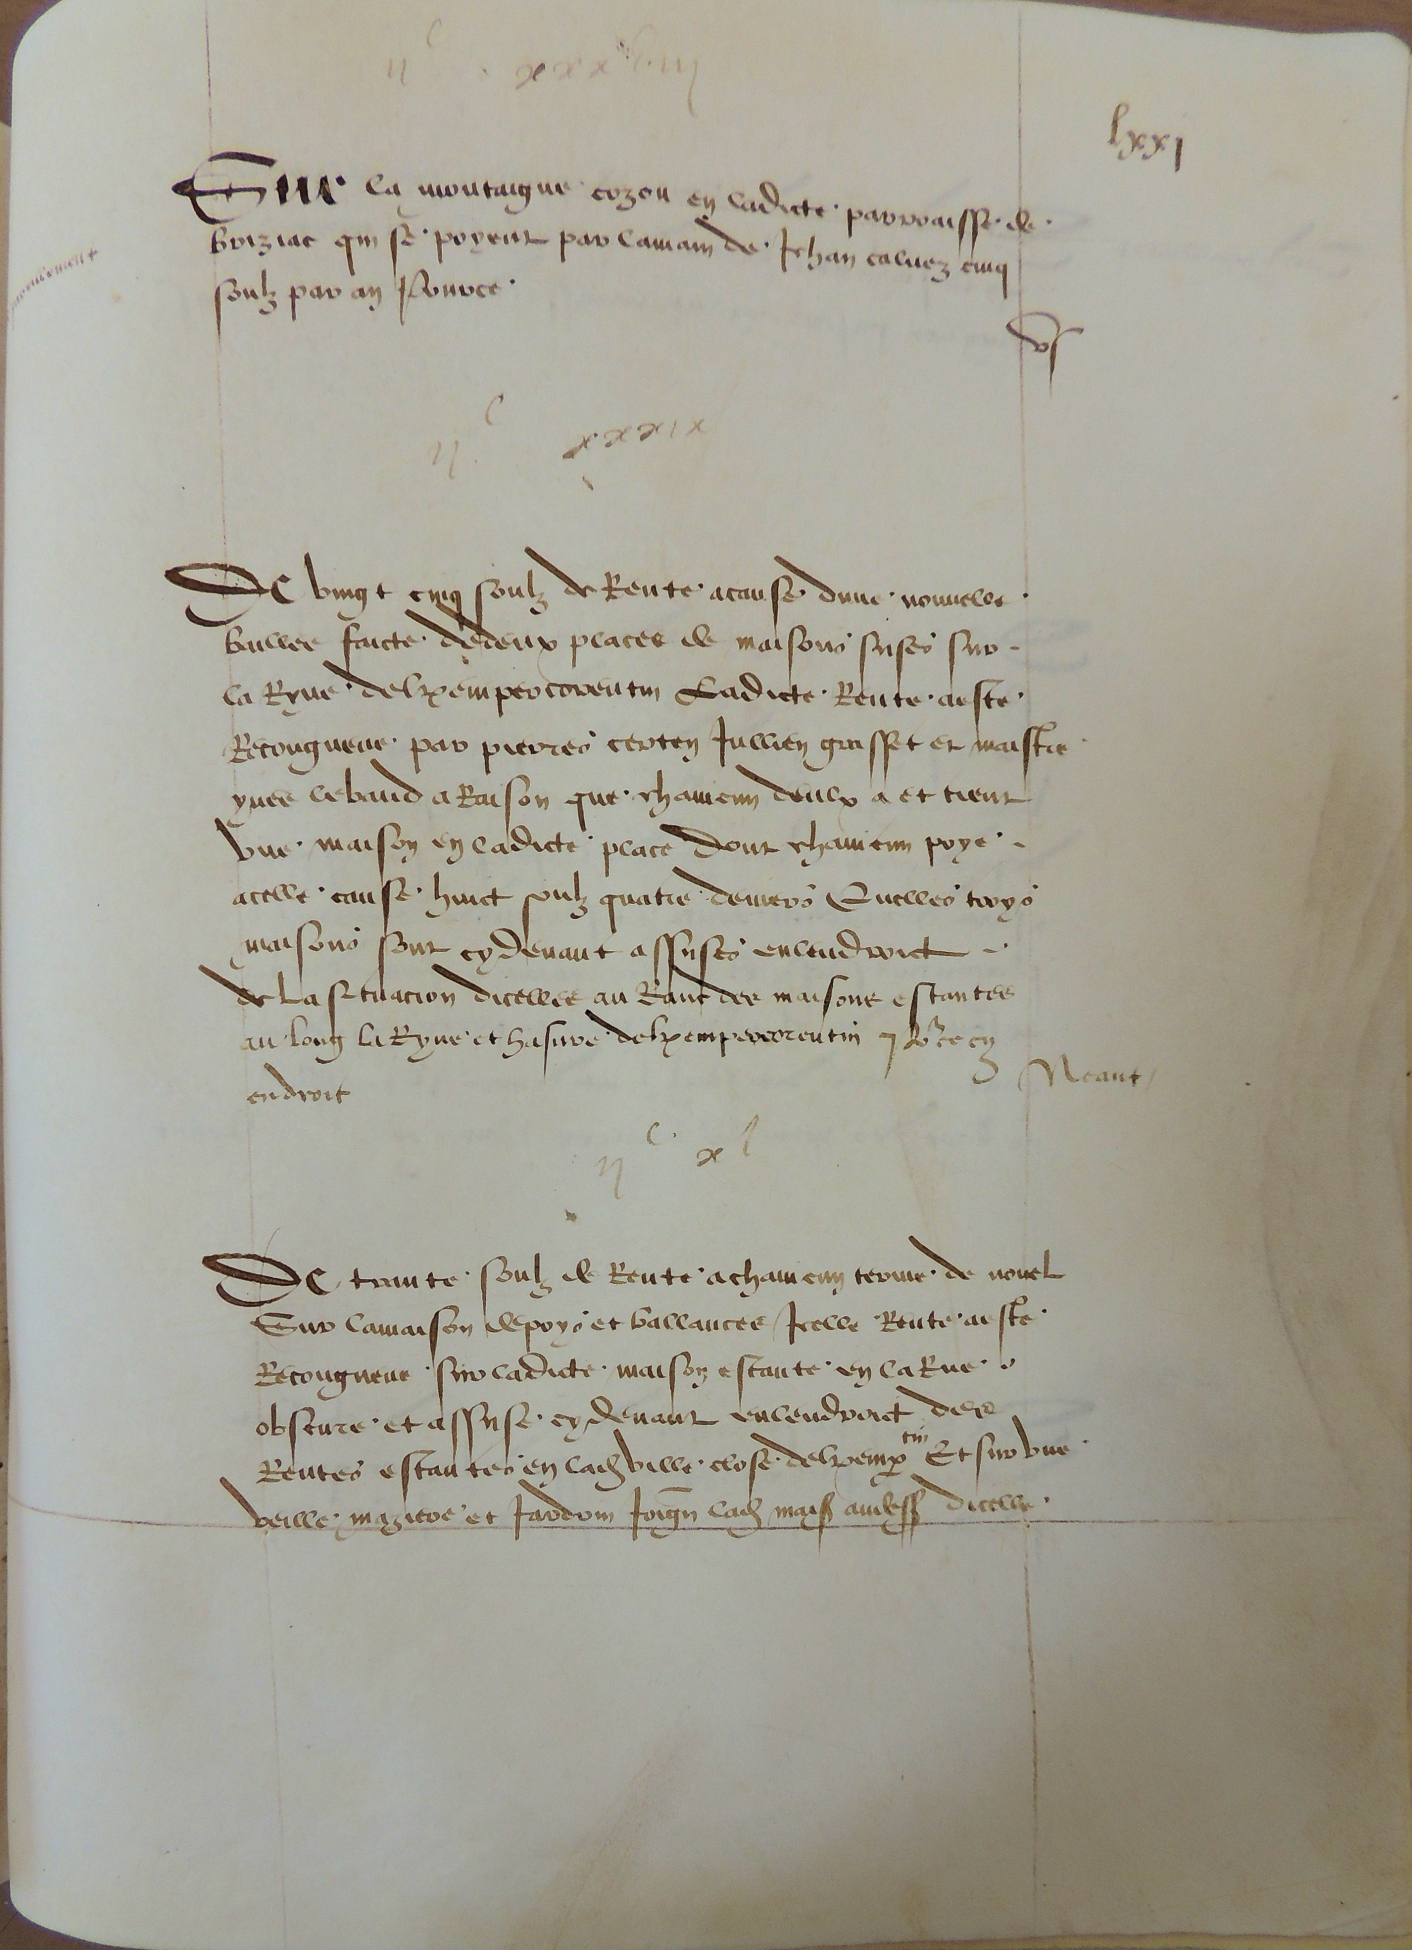 ii c xxxviii
lxxi
Sur la montaigne cozou en ladicte parroaisse de
briziac qui se poyent par lamain de Jehan caluez cinq
soulz par an Pource
v s
ii c xxxix
De vingt cinq soulz de Rente acause dune nouuelle
baillee faicte dedeux places de maisons sises sur
la Ryue delxempercorentin Ladicte Rente aeste
Recongneue par pierres certen Jullien grasset et maistre
yues lebaud a Raison que chaucun deulx a et tient
vne maison en ladicte place Dont chaucun poye
acelle cause huict soulz quatre deniers Quelles troys
maisons sont cy deuant assises enlendroict
de La situacion dicelles au Ranc des maisons estantes
au long la Ryue et delxempercorentin
endroit
Neant
ii c xl
De trante soulz de Rente achaucun terme de nouel
Sur lamaison depoys et ballances Icelle Rente aeste
Recongneue sur ladicte maison estante en la Rue
obscure et assise cy deuant enlendroict des
Rentes estantes en lad ville close delxemp tin Et sur vne
veille maziere et Jardrin Joign lad mais audess dicelle